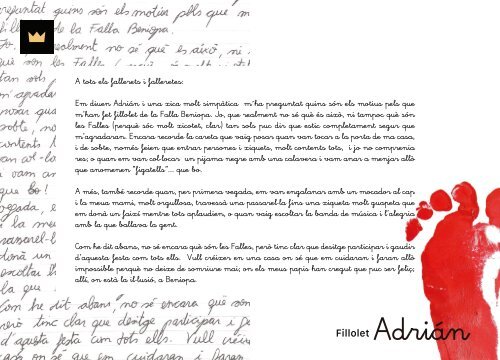 reguntat quins són els motius pels que m'
de la Falla Beniopa.
Jo, realment no sé què és això, ni
són les Falles
A tots els fallerets i falleretes:
Em diuen Adrián i una xica molt simpàtica m'ha preguntat quins són els motius pels que
m'han fet fillolet de la Falla Beniopa. Jo, que realment no sé què és això, ni tampoc què són
les Falles (perquè sóc molt xicotet, clar) tan sols puc dir que estic completament segur que
m'agradaran. Encara recorde la careta que vaig posar quan van tocar a la porta de ma casa,
i de sobte, només feien que entrar persones i xiquets, molt contents tots, i jo no comprenia
res; o quan em van col·locar un pijama negre amb una calavera i vam anar a menjar allò
que anomenen "figatells"... que bo.
A més, també recorde quan, per primera vegada, em van engalanar amb un mocador al cap
i la meua mami, molt orgullosa, travessà una passarel·la fins una xiqueta molt guapeta que
em donà un faixí mentre tots aplaudien, o quan vaig escoltar la banda de música i l'alegria
amb la que ballava la gent.
Com he dit abans, no sé encara què són les Falles, però tinc clar que desitge participar i gaudir
d'aquesta festa com tots ells. Vull créixer en una casa on sé que em cuidaran i faran allò
impossible perquè no deixe de somriure mai; on els meus papis han cregut que puc ser feliç;
allí, on està la il·lusió, a Beniopa.
Com he dit abans, no sé encara què són
però tinc clar que desitge participar i ga
d'aquesta festa com tots ells. Vull créixe
sé que em cuidaran i faran
Fillolet Adrián